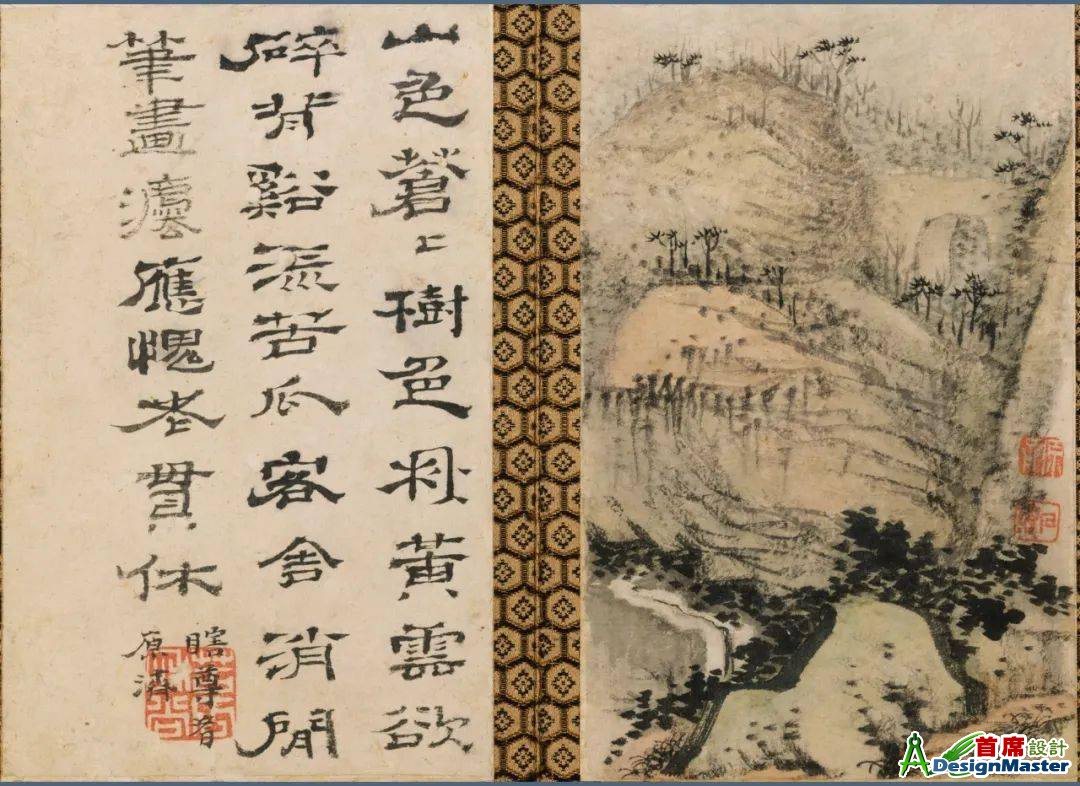 山色蒼〻樹色秋黃雲欲
碎背谿流苦瓜客舍消閒
筆畫灋應愧老貫休
瞎尊者
原濟
首席設計
DesignMaster